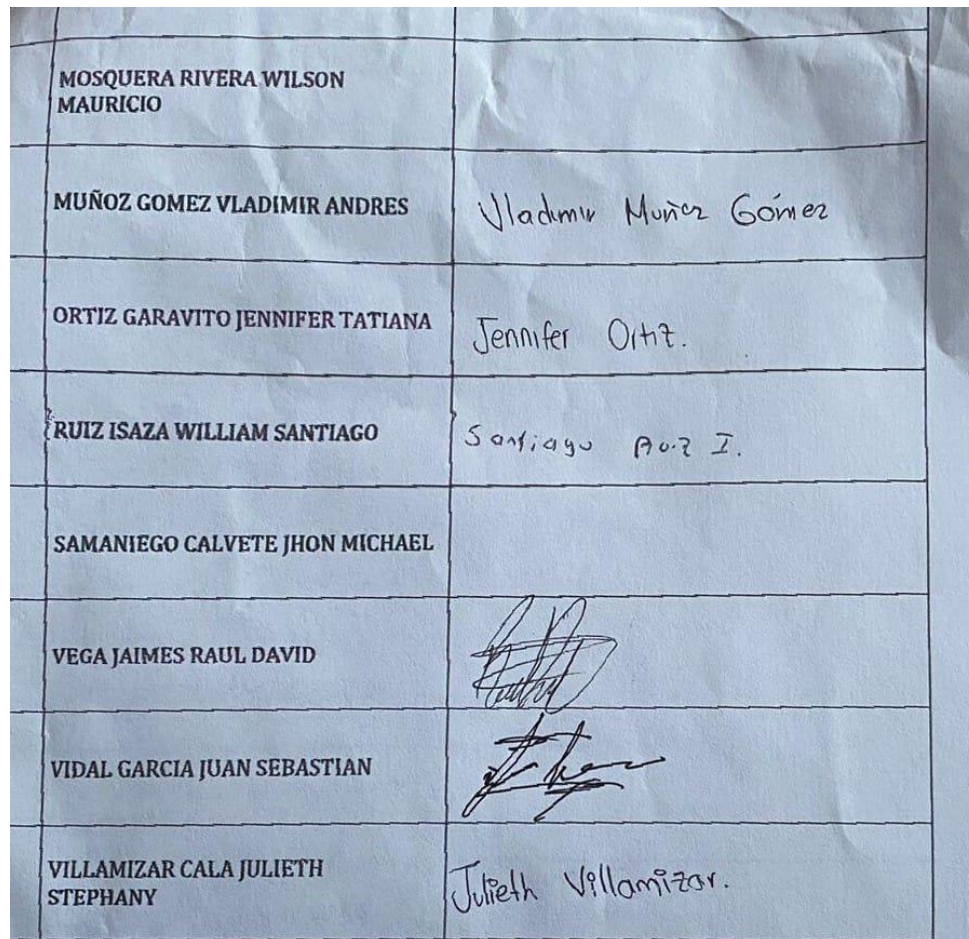 MOSQUERA RIVERA WILSON
MAURICIO
MUÑOZ GOMEZ VLADIMIR ANDRES
Vladimir Muñoz Gómez
ORTIZ GARAVITO JENNIFER TATIANA
Jennifer Ortiz.
RUIZ ISAZA WILLIAM SANTIAGO
Santiago Ruiz I.
SAMANIEGO CALVETE JHON MICHAEL
VEGA JAIMES RAUL DAVID
VIDAL GARCIA JUAN SEBASTIAN
VILLAMIZAR CALA JULIETH
STEPHANY
Julieth Villamizar.